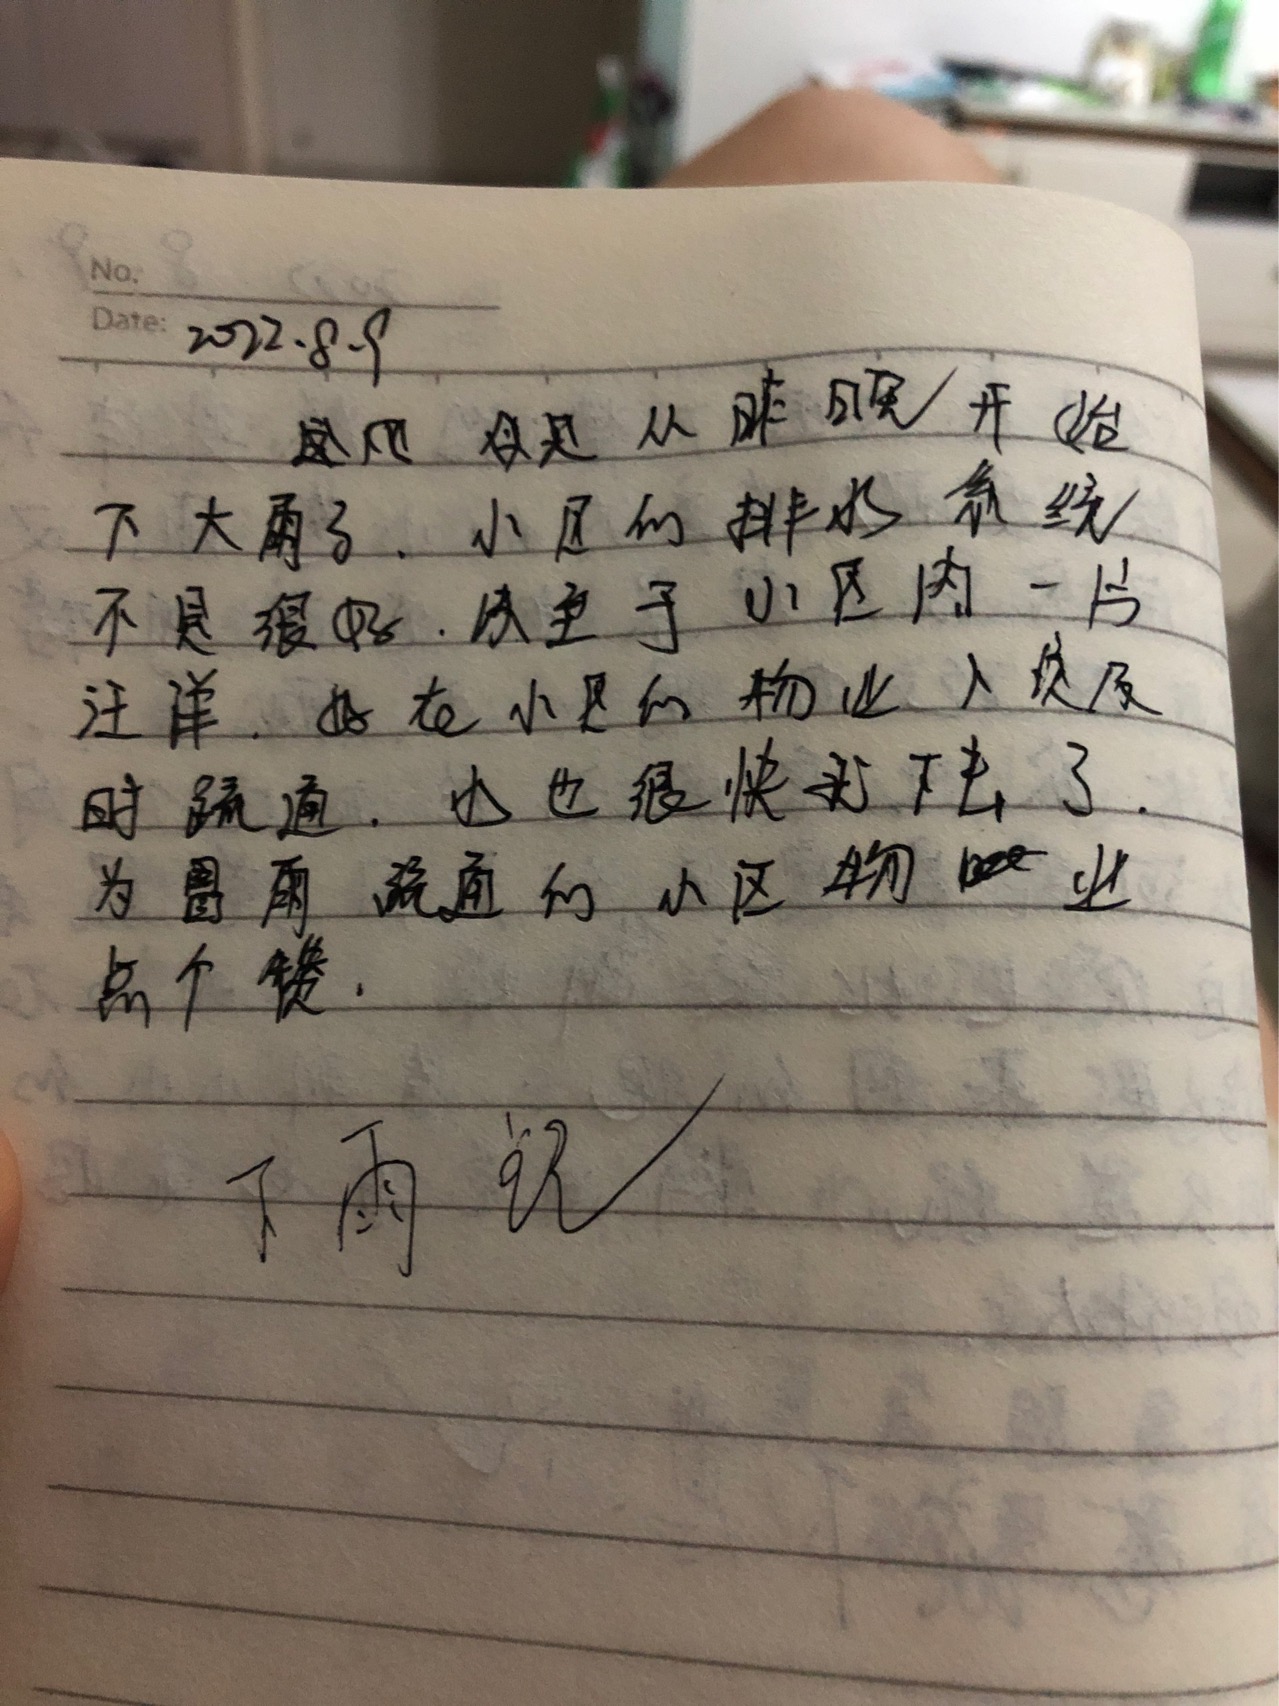 No.
Date: 2022.8.9
从昨晚开始
下大雨了.小区的排水系统
不是很好.决至于小区内一片
汪洋.好在小区的物业人员及
时疏通.水也很快下去了.
为冒雨疏通的小区物业
点个赞.
下雨记